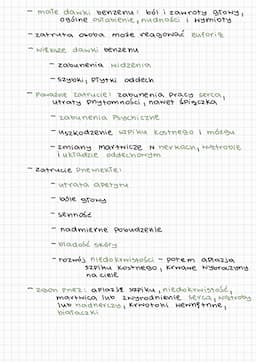 - małe dawki benzenu: ból i zawroty głowy,
ogólne osłabienie, nudności i wymioty
- zatruta osoba może reagować euforią
- większe dawki benzenu
- zaburzenia widzenia
- szybki, płytki oddech
- poważne zatrucie: zaburzenia pracy serca,
utraty przytomności, nawet śpiączka
- zaburzenia psychiczne
- uszkodzenie szpiku kostnego i mózgu
- zmiany martwicze w nerkach, wątrobie
i układzie oddechowym
- zatrucie przewlekłe:
- utrata apetytu
- bóle głowy
- senność
- nadmierne pobudzenie
- bladość skóry
- rozwój niedokrwistości - potem aplazja
szpiku kostnego, krwawe wybroczyny
na ciele
- zgon przez: aplazję szpiku, niedokrwistość,
martwica lub zwyrodnienie serca, wątroby
lub nadnerczy, krwotoki wewnętrzne,
białaczki